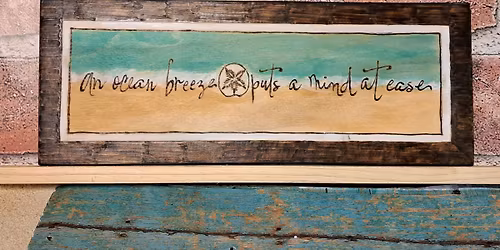 an ocean breeze puts a mind at ease